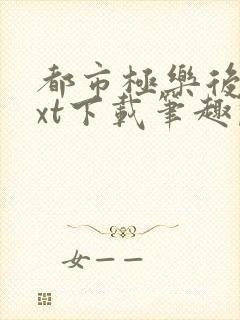 都市極樂後
xt下載筆趣
女——